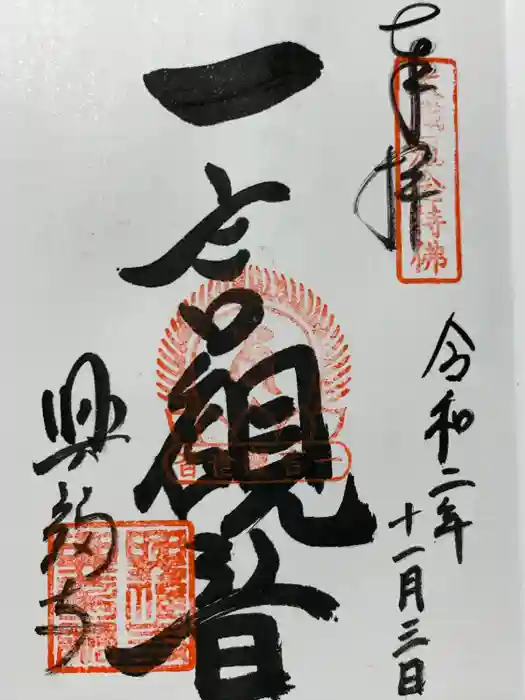 奉拝
令和二年
十一月三日
一言観音
興福寺